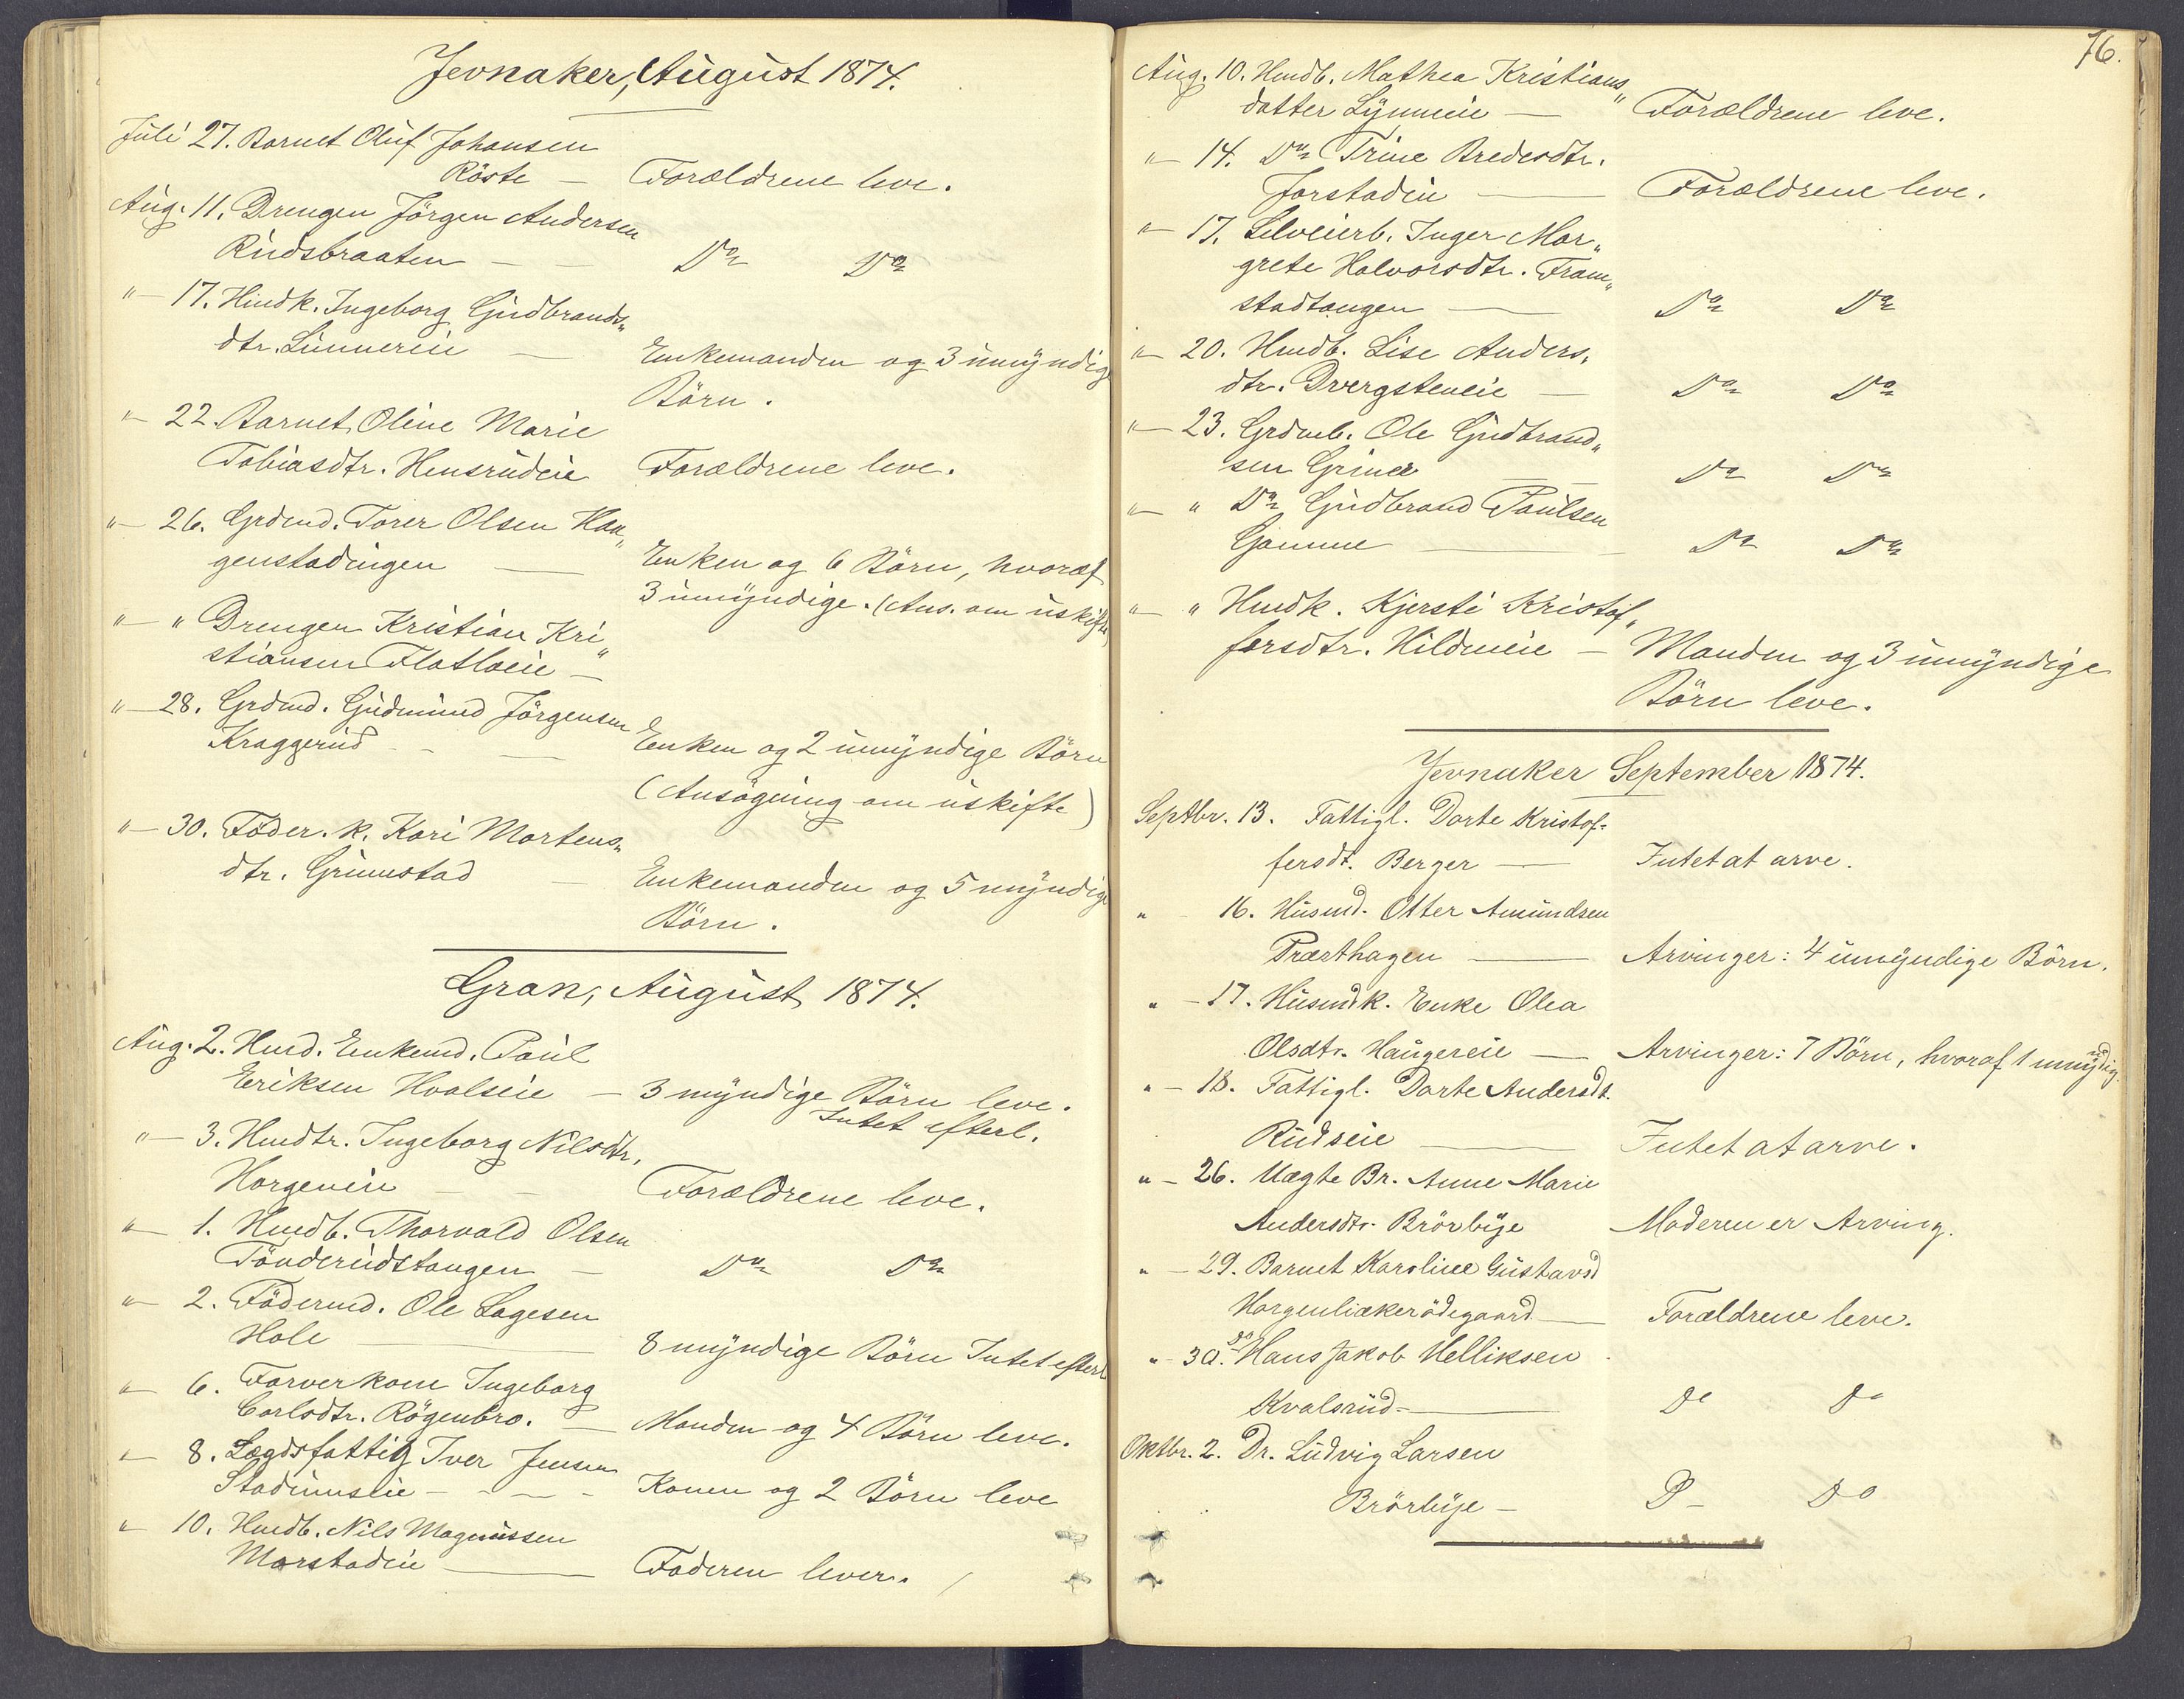 Jevnaker, August 1874.
Juli 27. Barnet Oluf Johansen
Röste — Forældrene leve.
Aug. 11. Drengen Jörgen Andersen
Rudsbraaten — Do Do
"— 17. Hmdk. Ingeborg Gudbrands„
dtr. Lunnereie — Enkemanden og 3 umyndige
Börn.
"— 22. Barnet Oline Marie
Tobiasdtr. Hensrudeie Forældrene leve.
"— 26. Grdmd. Torer Olsen Haa„
genstadengen — Enken og 6 Börn, hvoraf
3 umyndige. (Ans. om uskifte)
"— " Drengen Kristian Kri„
stiansen Flatlaeie —
"— 28. Grdmd. Gudmund Jörgensen
Kraggerud — Enken og 2 umyndige Börn
(Ansögning om uskifte)
"— 30. Föder. k. Kari Mortens„
dtr. Grimestad — Enkemanden og 5 myndige
Börn.
Gran, August 1874.
Aug. 2. Hmd. Enkemd. Paul
Eriksen Hvalseie — 3 myndige Börn leve.
Intet efterl.
"— 3. Hmdtr. Ingeborg Nilsdtr.
Horgeneie — Forældrene leve.
"— 1. Hmdb. Thorvald Olsen
Tönderudstangen — Do Do
"— 2. Födermd. Ole Lagesen
Hole — 8 myndige Börn Intet efterl
"— 6. Farverkone Ingeborg
Carlsdtr. Rögenbro. — Manden og 4 Börn leve.
"— 8. Lægdsfattig Iver Jensen
Stadumseie — Konen og 2 Börn leve
"— 10. Hmdb. Nils Magnussen
Morstadeie — Faderen lever.
76.
Aug. 10. Hmdb. Mathea Kristians„
datter Lynneeie — Forældrene leve.
"— 14. Do Trine Bredesdtr.
Jorstadeie — Forældrene leve.
"— 17. Selveierb. Inger Mar„
grete Halvorsdtr. Fram„
stadtangen — Do Do
"— 20. Hmdb. Lise Anders„
dtr. Dvergsteneie — Do Do
"— 23. Grdmb. Ole Gudbrand„
sen Grina — Do Do
"— " Do Gudbrand Paulsen
Gamme — Do Do
"— " Hmdk. Kjersti Kristof„
fersdtr. Hildeneie — Manden og 3 umyndige
Börn leve.
Jevnaker September 1874.
Septbr. 13. Fattigl. Dorte Kristof-
fersdt. Berger — Intet at arve.
" 16. Husmd. Otter Amundsen
Præsthagen — Arvinger: 4 umyndige Börn.
" — 17. Husmdk. Enke Olea
Olsdtr. Haugereie — Arvinger: 7 Börn, hvoraf 1 umyndig.
" — 18. Fattigl. Dorte Andersdt.
Rudseie — Intet at arve.
" — 26. Uægte Br. Anne Marie
Andersdtr. Brörbye Moderen er Arving.
" — 29. Barnet Karoline Gustavsd
Horgenliækerödegaard — Forældrene leve.
" — 30. do Hans Jakob Helliksen
Kvalsrud — Do Do
Oktbr. 2. Dr. Ludvig Larsen
Brörbye — D— Do